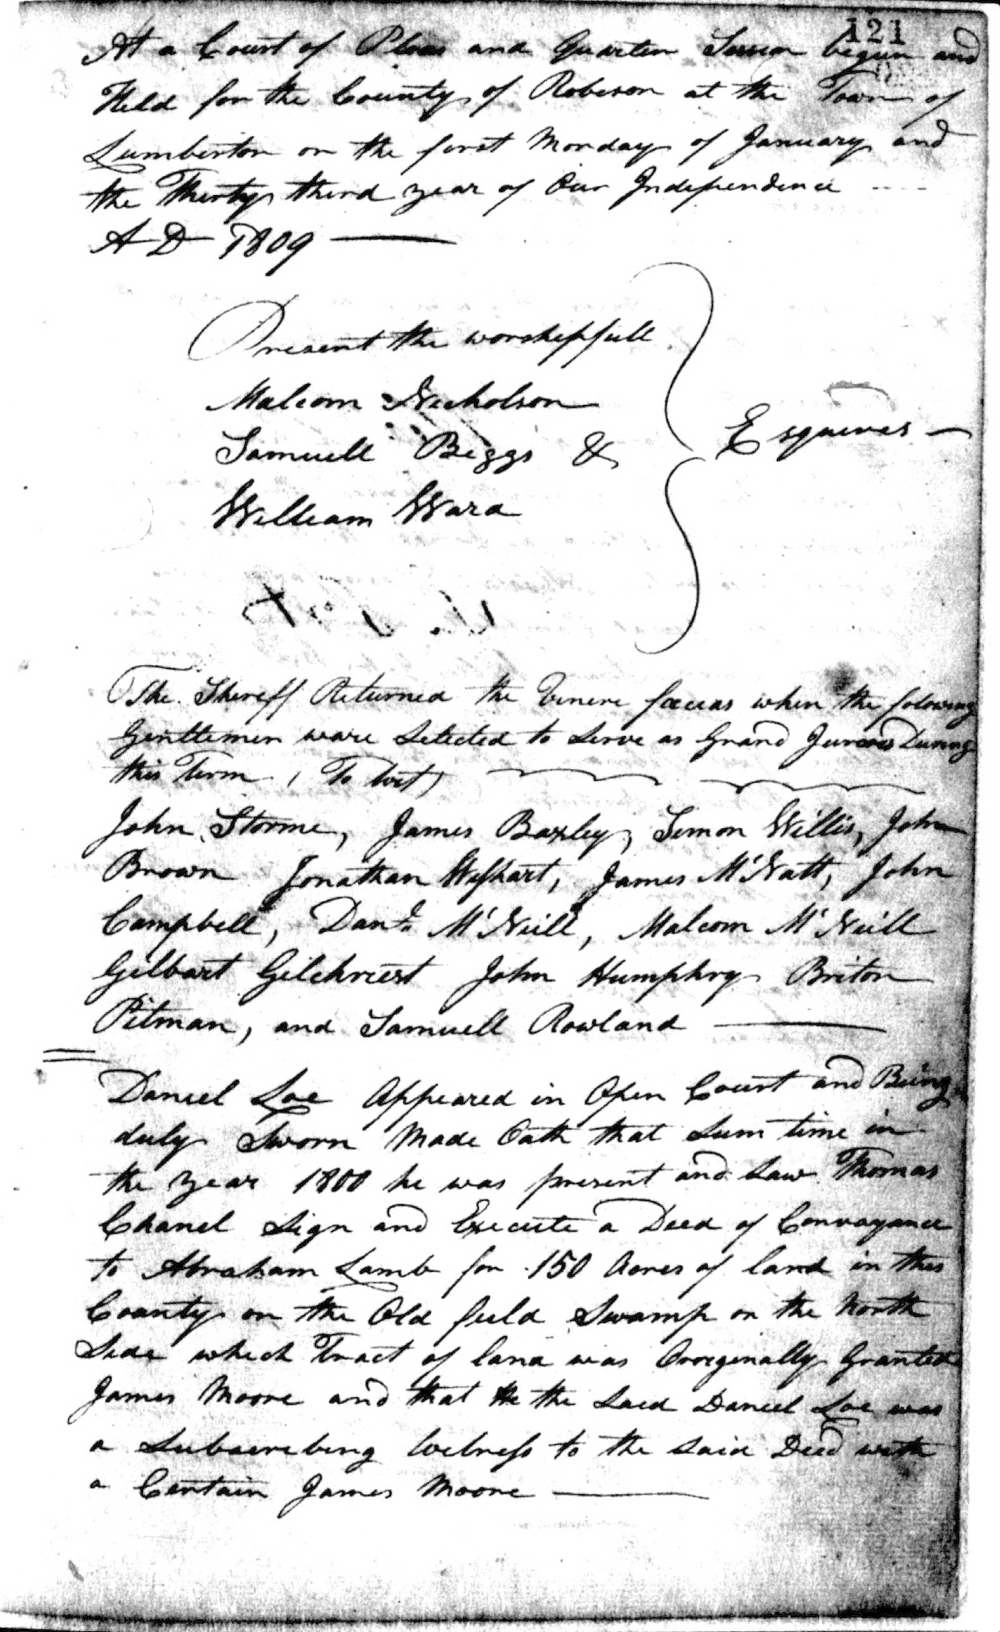 121
At a Court of Pleas and Quarter Session begun and
Held for the County of Robeson at the Town of
Lumberton on the first Monday of January and
the Thirty third year of Our Independence ....
A D 1809
Present the worshipfull
Malcom Nicholson
Samuell Biggs &
William Ward
Esquires
The Shereff Returned the Venire facias when the folowing
Gentlemen ware Selected to Serve as Grand Jurors During
this Term (To wit)
John Storme, James Baxley, Simon Willis, John
Brown Jonathan Wishart, James McNatt, John
Campbell, Danl. McNeill, Malcom McNeill
Gilbart Gilchrist John Humphry Briton
Pitman, and Samuell Rowland
Daniel Loe Appeared in Open Court and Being
duly Sworn Made Oath that Sum time in
the year 1800 he was present and Saw Thomas
Chanel Sign and Execute a Deed of Convayance
to Abraham Lamb for 150 Acres of land in this
County on the Old field Swamp on the North
Side which Tract of land was Oroiginally Granted
James Moore and that He the Said Daniel Loe was
a Subscribeing Witness to the Said Deed with
a Certain James Moore